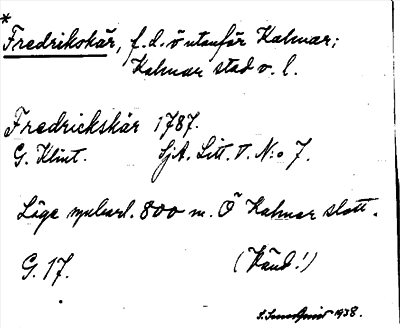 * Fredrikskär, f. d. ö utanför Kalmar;
Kalmar stad o. l.
Fredrickskär 1787.
G. Klint. SjA. Litt. V. N:o 7.
Läge 800 m. Ö Kalmar slott.
G. 17. (Känd!)
1938.